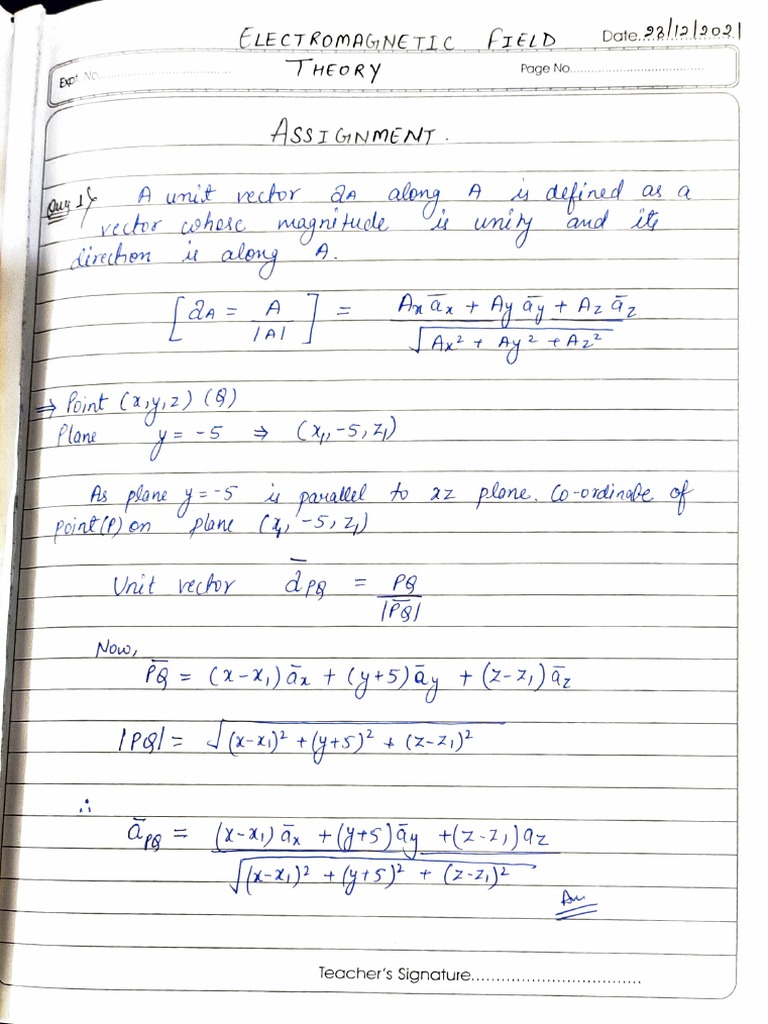 ELECTROMAGNETIC FIELD Date..23/12/2021
Expt. No............................................ THEORY Page No............................................
ASSIGNMENT.
Ques 1) A unit vector aA along A is defined as a
vector whose magnitude is unity and its
direction is along A.
[aA = A / |A|] = Ax āx + Ay āy + Az āz / √Ax² + Ay² + Az²
⇒ Point (x,y,z) (Q)
Plane y = -5 ⇒ (x₁, -5, z₁)
As plane y=-5 is parallel to xz plane. Co-ordinate of
point(P) on plane (x₁, -5, z₁)
Unit vector āPQ = PQ / |P̅Q̅|
Now,
P̅Q̅ = (x-x₁) āx + (y+5) āy + (z-z₁) āz
|PQ| = √(x-x₁)² + (y+5)² + (z-z₁)²
∴
āPQ = (x-x₁) āx + (y+5) āy + (z-z₁) az / √(x-x₁)² + (y+5)² + (z-z₁)²
Ans
Teacher's Signature....................................